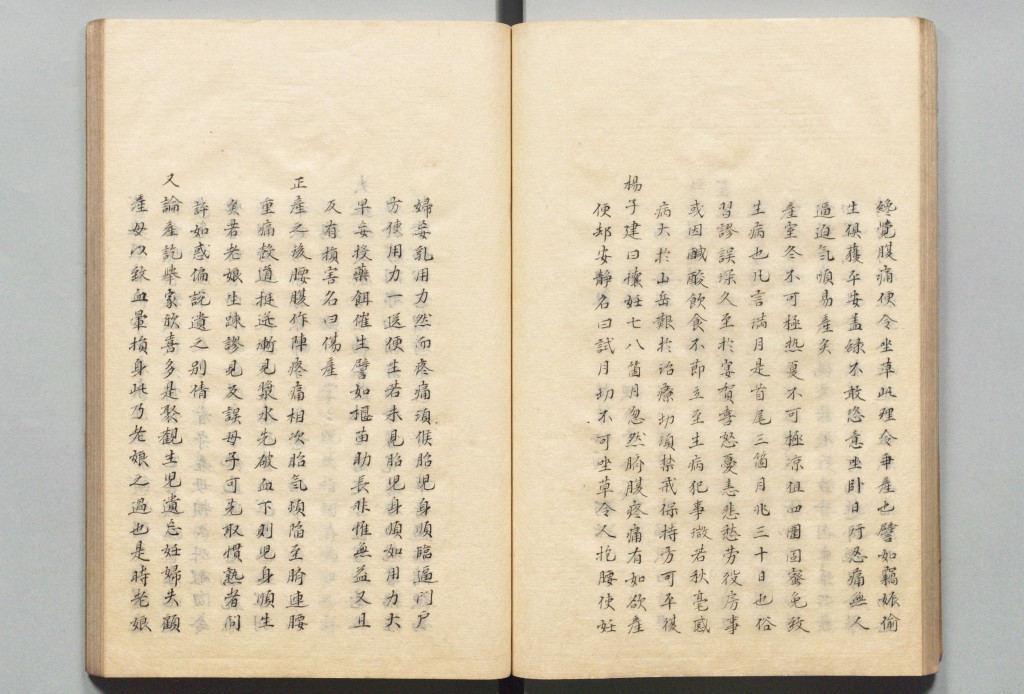 纔覺腹痛便令坐草此理令車產也譬如竊娠偷
生俱獲平安盖緣不敢恣意坐卧日行忍痛無人
逼迫氣順易產矣
產室冬不可極熱夏不可極凉狙四圍固密免致
生病也凡言滿月是首尾三箇月非三十日也俗
習謬誤深久至於宴賀喜怒憂恚悲愁勞役房事
或因鹹酸飲食不節立至生病犯事微若秋毫感
病大於山岳艱於治療切須禁戒保持方可平復
楊子建曰懷妊七八箇月忽然臍腹疼痛有如欲產
便却安靜名曰試月切不可坐草令人抱腰使妊
婦妄亂用力然而疼痛須候胎兒身順臨逼門戸
方使用力一送便生若未見胎兒身順如用力大
早妄投藥餌催生譬如揠苗助長非惟無益又且
反有損害名曰傷產
正產之後腰腹作陣疼痛相次胎氣頓陷至臍連腰
重痛穀道挺迸漸見漿水先破血下則兒身順生
矣若老娘生踈謬見及誤母子可先取慣熟者問
許如惑偏說遺之别倩
又論產訖舉家欣喜多是聚觀生兒遺忘妊婦失顧
產母以致血暈損身此乃老娘之過也是時老娘